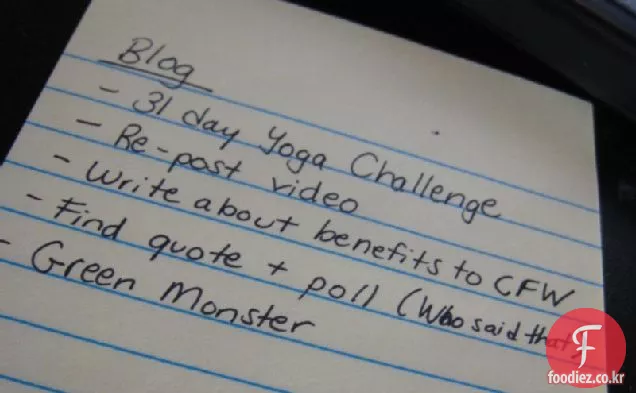 Blog
- 31 day Yoga Challenge
- Re-post video
- Write about benefits to CFW
- Find quote + poll (Who said that
- Green Monster
F
foodiez.co.kr